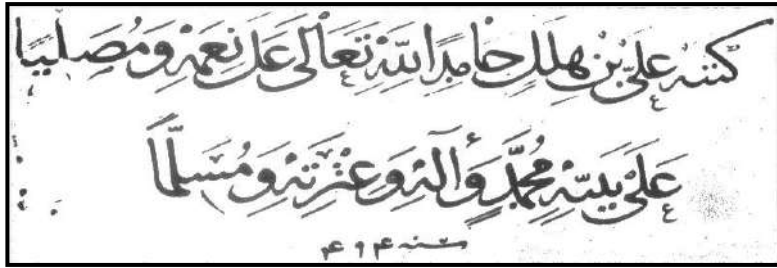 كتبه عَلِيّ بْن هِلِلِ حَامِدًا اللهِ تَعَالَى عَلَى نِعَمِهِ وَ مُصَلِّيًا
عَلَى نَبِيِّهِ مُحَمَّدٍ وَآلِهِ وَعِتْرَتِهِ وَ مُسَلِّمًا